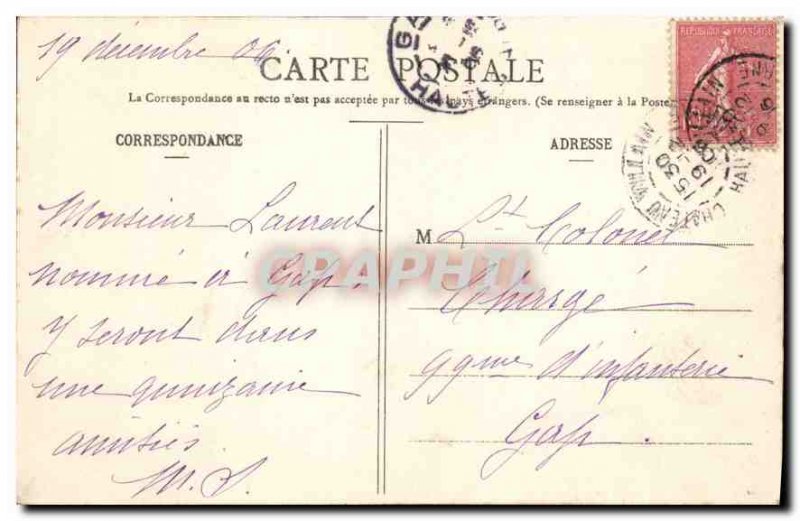 19 décembre 06
CARTE POSTALE
La Correspondance au recto n'est pas acceptée par tous les pays étrangers. (Se renseigner à la Poste
CORRESPONDANCE
Monsieur Laurent
nommé à Gap !
y seront dans
une quinzaine
amitiés
M. S.
ADRESSE
REPUBLIQUE FRANÇAISE
M Lt Colonel
99me d'infanterie
Gap.
CRAPHIL